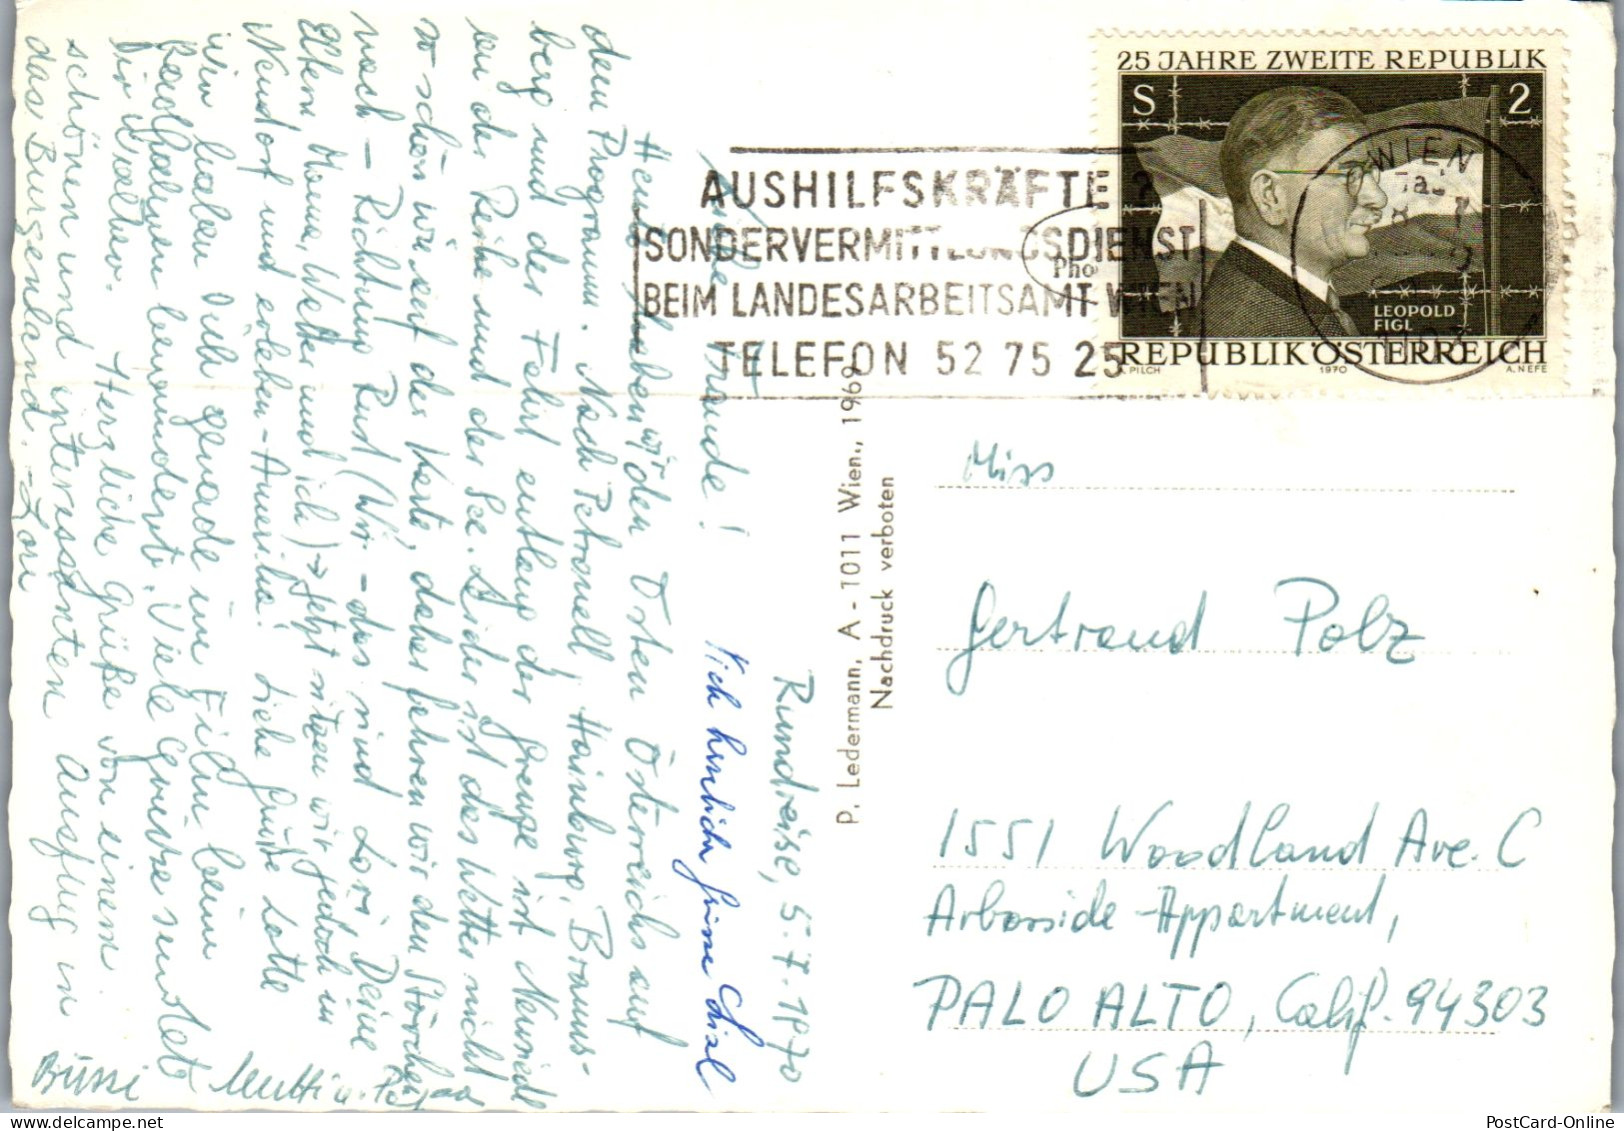 Rundreise, 5.7.1970
Liebe Traude!
Heute haben wir den Osten Österreichs auf
dem Programm. Nach Petronell, Hainburg, Branns-
berg und der Fahrt entlang der Grenze ist Neusiedl
an der Reihe und der See. Leider ist das Wetter nicht
so schön wie auf der Karte, daher fahren wir den Störchen
nach – Richtung Rust (Wir – das sind Lori, Deine
Eltern, Mama, Walter und ich) → Jetzt sitzen wir jedoch in
Neudorf und erleben – Amerika! Liebe Grüße Lotte
Wir haben Dich gerade im Film beim
Radfahren bewundert. Viele Grüsse sendet
Dir Walter. Herzliche Grüße von einem
schönen und interessanten Ausflug in
das Burgenland. – Lori
Bussi Mutti u. Papa
herzliche Grüsse Lisl
P. Ledermann, A - 1011 Wien., 1969
Nachdruck verboten
Pho
AUSHILFSKRÄFTE ?
SONDERVERMITTLUNGSDIENST
BEIM LANDESARBEITSAMT WIEN
TELEFON 52 75 25
WIEN
25 JAHRE ZWEITE REPUBLIK
S 2
LEOPOLD
FIGL
REPUBLIK ÖSTERREICH
A. PILCH 1970 A. NEFE
Miss
Gertraud Polz
1551 Woodland Ave. C
Arborside-Appartment,
PALO ALTO, Calif. 94303
USA
PostCard-Online